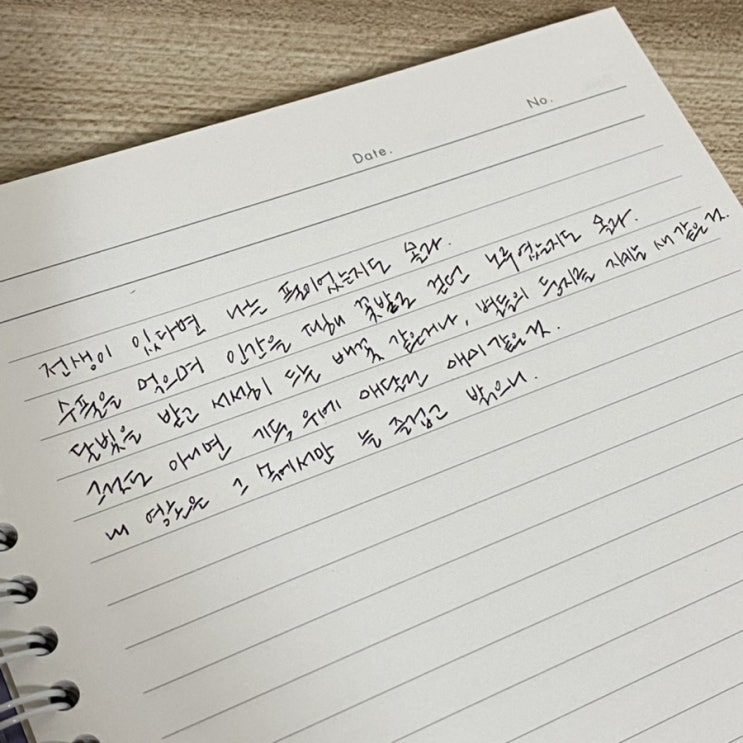 No.
Date.
전생이 있다면 나는 풀이었는지도 몰라.
수풀을 먹으며 인간을 피해 꽃밭을 걷던 노루였는지도 몰라.
달빛을 받고 서서히 배꽃 같은거나, 둥지를 지키는 새 같은 거.
그것도 아니면 기둥 위에 매달린 매미 같은 거.
내 영혼은 그 속에서만 늘 즐겁고 밝으니.